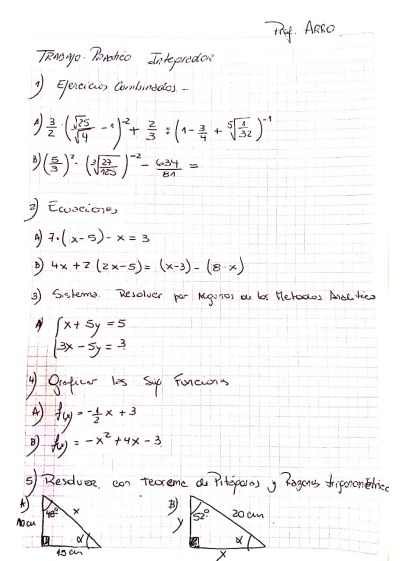 Prof. ARRO.
TRABAJO. Práctico Integrador
1) Ejercicios Combinados -
A) 3/2 · (√25/√4 - 1)^-2 + 2/3 : (1 - 3/4 + ⁵√(1/32))^-1
B) (5/3)^2 · (³√(27/125))^-2 - 634/81 =
2) Ecuaciones
A) 7·(x-5) - x = 3
B) 4x + 2(2x-5) = (x-3) - (8-x)
3) Sistema. Resolver por algunos de los Metodos Analitico
A) { x + 5y = 5
3x - 5y = 3
4) Graficar las Sig Funciones
A) f(x) = -1/2 x + 3
B) f(x) = -x² + 4x - 3
5) Resolver con Teorema de Pitágoras y Razones trigonométricas
A) 10 cm 48° x α 15 cm
B) y 52° 20 cm α x